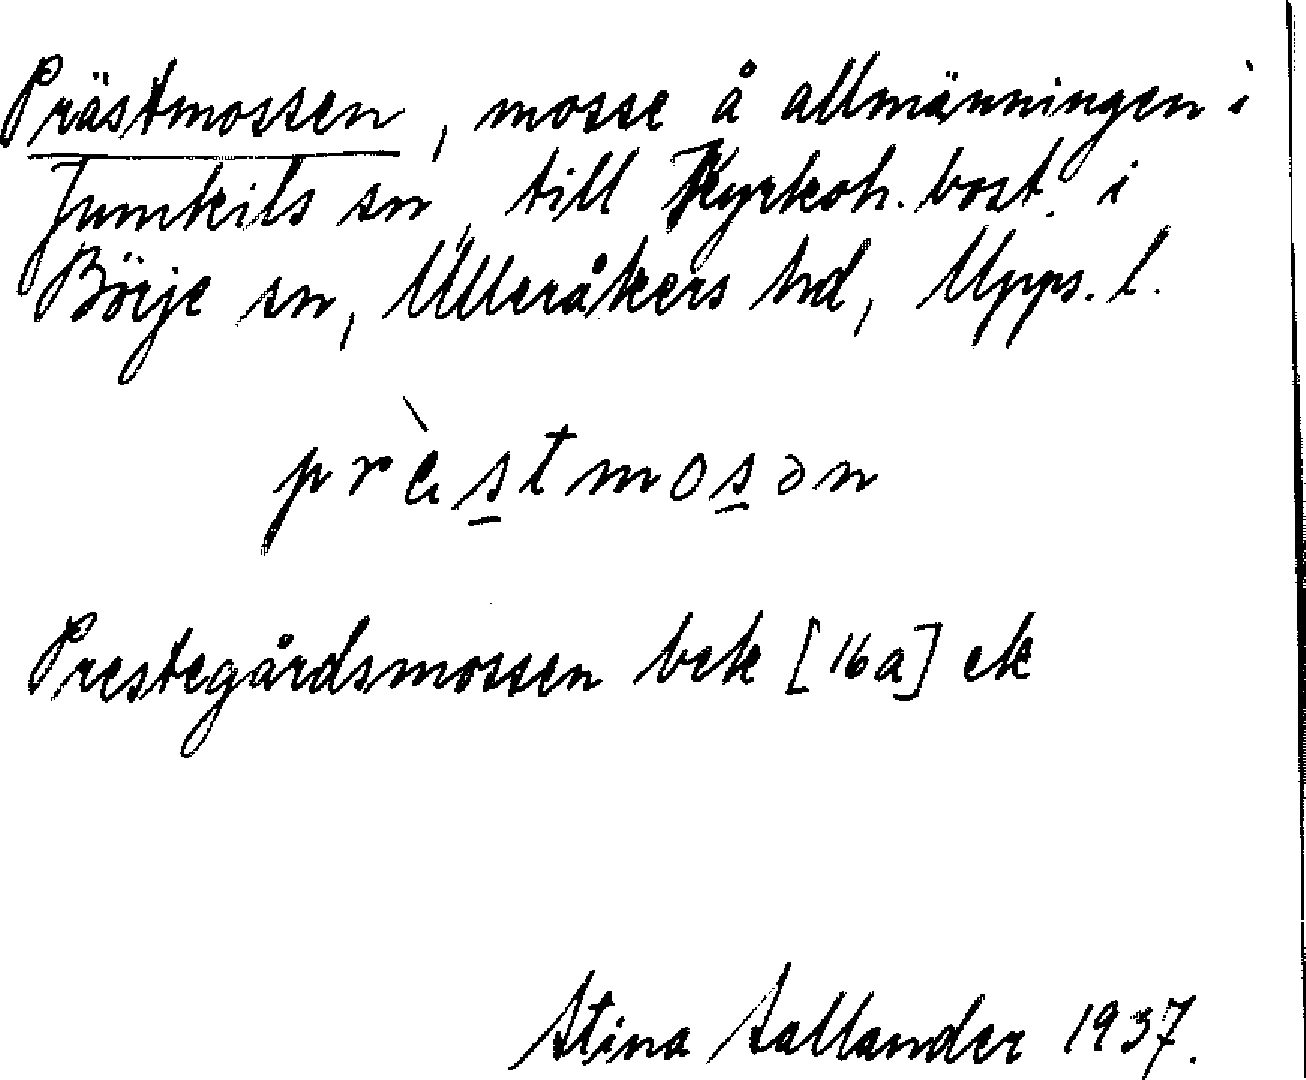 Prästmossen, mosse å allmänningen i
Jumkils sn, till Kyrkoh. bost. i
Börje sn, Ulleråkers hd, Upps. l.
prèstmosən
Prestegårdsmossen bek [16a] ek
Stina Sallander 1937.